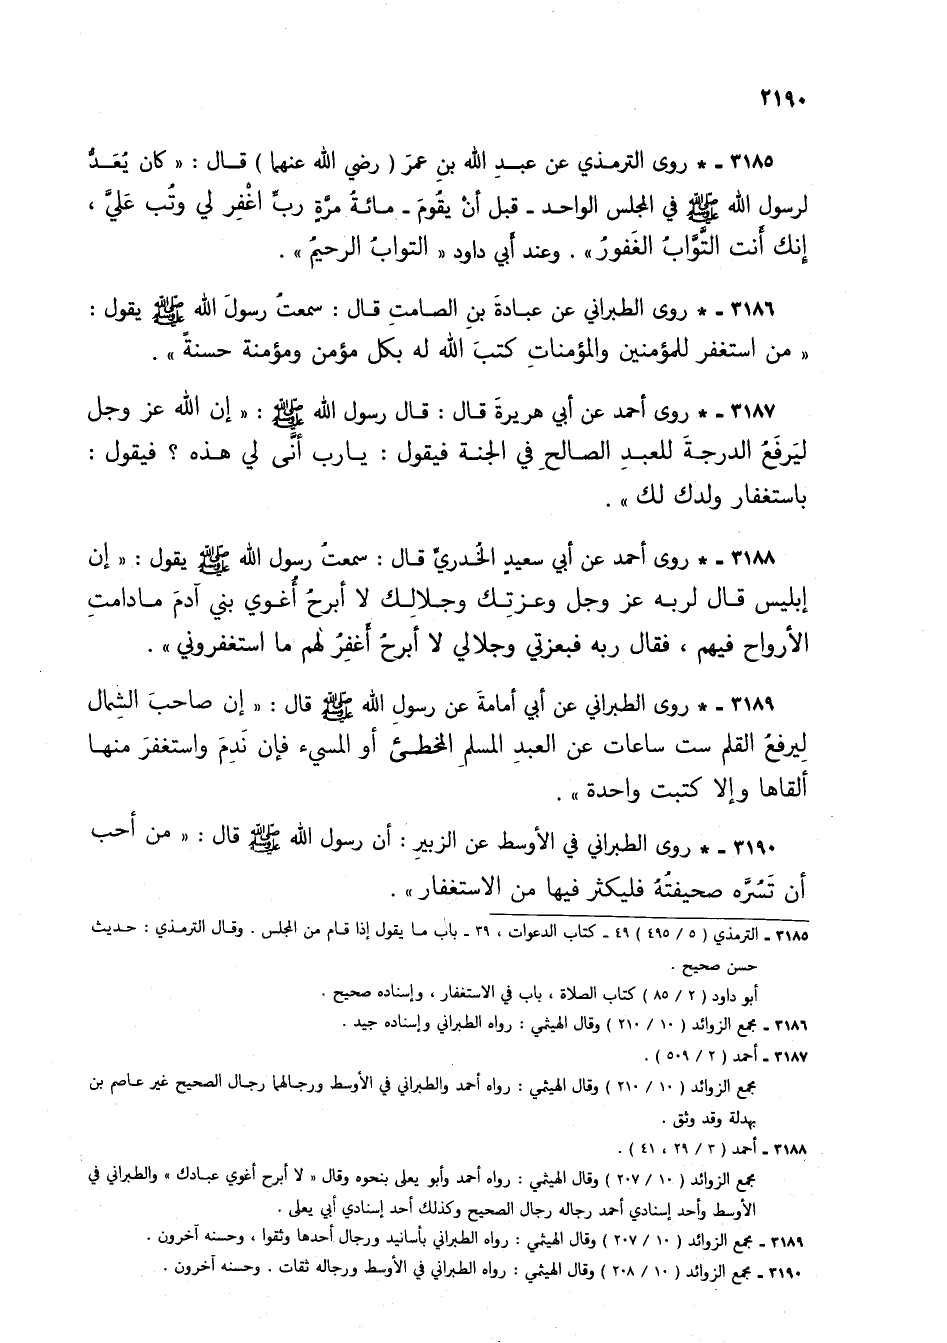 ٢١٩٠
٣١٨٥ ـ * روى الترمذي عن عبـد الله بنِ عمرَ ( رضي الله عنهما ) قـال : « كان يُعَـدُّ
لرسول الله ﷺ في المجلس الواحـد ـ قبل أنْ يقُومَ ـ مـائـةُ مرَّةٍ ربِّ اغْفِر لي وتُب عَليَّ ،
إنك أَنت التَّوَّابُ الغَفورُ» . وعند أبي داود « التوابُ الرحيمُ » .
٣١٨٦ ـ * روى الطبراني عن عبـادةَ بنِ الصـامتِ قـال : سمعتُ رسولَ الله ﷺ يقول :
« من استغفر للمؤمنين والمؤمناتِ كتبَ الله له بكل مؤمن ومؤمنة حسنةً » .
٣١٨٧ ـ * روى أحمد عن أبي هريرةَ قـال : قـال رسول الله ﷺ : « إن الله عز وجل
ليَرفَعُ الدرجةَ للعبـدِ الصـالحِ في الجنـة فيقول : يـارب أنَّى لي هـذه ؟ فيقول :
باستغفار ولدك لك » .
٣١٨٨ ـ * روى أحمد عن أبي سعيدٍ الخُدريِّ قـال : سمعتُ رسول الله ﷺ يقول : « إن
إبليس قـال لربـه عز وجل وعـزتِـك وجـلالِـك لا أبرحُ أُغـوي بني آدمَ مـادامتِ
الأرواح فيهم ، فقال ربه فبعزتي وجلالي لا أبرحُ أَغفِرُ لهم ما استغفروني » .
٣١٨٩ ـ * روى الطبراني عن أبي أمامةَ عن رسولِ الله ﷺ قال : « إن صاحبَ الشِّمالِ
لِيرفعُ القلم ست سـاعات عن العبدِ المسلمِ المخطـئ أو المسيء فإن نَدِمَ واستغفرَ منهـا
ألقاها وإلا كتبت واحدة » .
٣١٩٠ ـ * روى الطبراني في الأوسط عن الزبيرِ : أن رسول الله ﷺ قال : « من أحب
أن تَسُرَّه صحيفتُهُ فليكثر فيها من الاستغفار » .
٣١٨٥ ـ الترمذي ( ٥ / ٤٩٥ ) ٤٩ ـ كتاب الدعوات ، ٣٩ ـ باب مـا يقول إذا قـام من المجلس . وقـال الترمـذي : حـديث
حسن صحيح .
أبو داود ( ٢ / ٨٥ ) كتاب الصلاة ، باب في الاستغفار ، وإسناده صحيح .
٣١٨٦ ـ مجمع الزوائد ( ١٠ / ٢١٠ ) وقال الهيثمي : رواه الطبراني وإسناده جيد .
٣١٨٧ ـ أحمد ( ٢ / ٥٠٩ ) .
مجمع الزوائد ( ١٠ / ٢١٠ ) وقال الهيثمي : رواه أحمد والطبراني في الأوسط ورجالهما رجال الصحيح غير عـاصم بن
بهدلة وقد وثق .
٣١٨٨ ـ أحمد ( ٣ / ٢٩ ، ٤١ ) .
مجمع الزوائد ( ١٠ / ٢٠٧ ) وقال الهيثمي : رواه أحمد وأبو يعلى بنحوه وقال « لا أبرح أغوي عبـادك » والطبراني في
الأوسط وأحد إسنادي أحمد رجاله رجال الصحيح وكذلك أحد إسنادي أبي يعلى .
٣١٨٩ ـ مجمع الزوائد ( ١٠ / ٢٠٧ ) وقال الهيثمي : رواه الطبراني بأسانيد ورجال أحدها وثقوا ، وحسنه آخرون .
٣١٩٠ ـ مجمع الزوائد ( ١٠ / ٢٠٨ ) وقال الهيثمي : رواه الطبراني في الأوسط ورجاله ثقات . وحسنه آخرون .